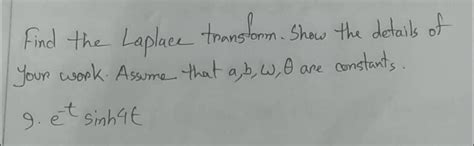 Find the Laplace transform. Show the details of
your work. Assume that a, b, ω, θ are constants.
9. e^-t sinh4t